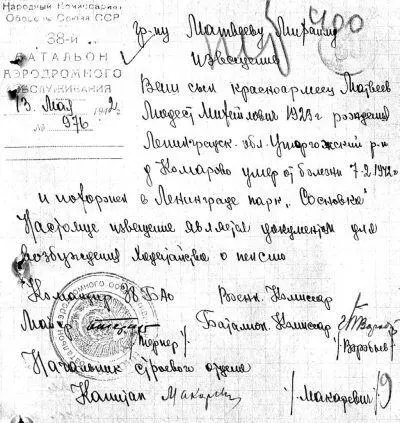 Народный Комиссариат
Обороны Союза ССР
38-й
БАТАЛЬОН
АЭРОДРОМНОГО
ОБСЛУЖИВАНИЯ
13 Мая 1942
№ 976
гр-ну Матвееву Михаилу
400
Извещение
Ваш сын красноармеец Матвеев
Модест Михайлович 1923 г рождения
Ленинградск. обл. Уторгожский р-н
д Комарово умер от болезни 7-2.1942 г
и похоронен в Ленинграде парк „Сосновка“
Настояще извещение является документом для
возбуждения ходатайства о пенсию
Командир 38 БАО Военк. Комиссар
Майор Батальон. Комиссар
/Кернер/ /Воробьев/
Начальник строевого отдела
Капитан Макаревич /Макаревич/